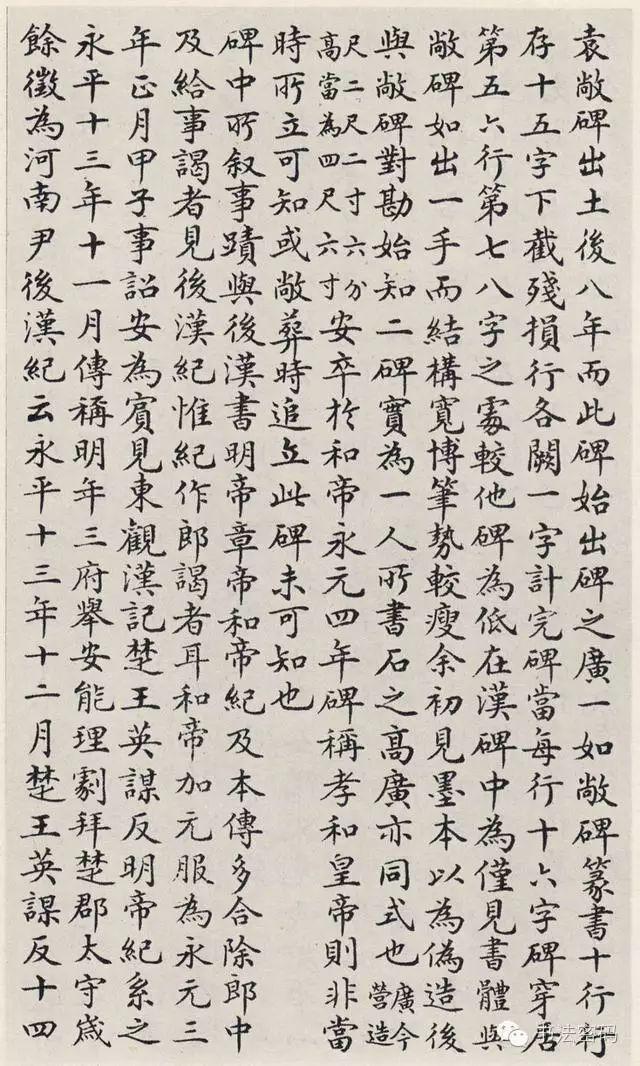 袁敞碑出土後八年而此碑始出碑之廣一如敞碑篆書十行行
存十五字下截殘損行各闕一字計完碑當每行十六字碑穿居
第五六行第七八字之處較他碑為低在漢碑中為僅見書體與
敞碑如出一手而結構寬博筆勢較瘦余初見墨本以為偽造後
與敞碑對勘始知二碑實為一人所書石之高廣亦同式也廣今營造
尺二尺二寸六分高當為四尺六寸安卒於和帝永元四年碑稱孝和皇帝則非當
時所立可知或敞葬時追立此碑未可知也
碑中所叙事蹟與後漢書明帝章帝和帝紀及本傳多合除郎中
及給事謁者見後漢紀惟紀作郎謁者耳和帝加元服為永元三
年正月甲子事詔安為賓見東觀漢記楚王英謀反明帝紀系之
永平十三年十一月傳稱明年三府舉安能理劇拜楚郡太守歲
餘徵為河南尹後漢紀云永平十三年十二月楚王英謀反十四
书法密码